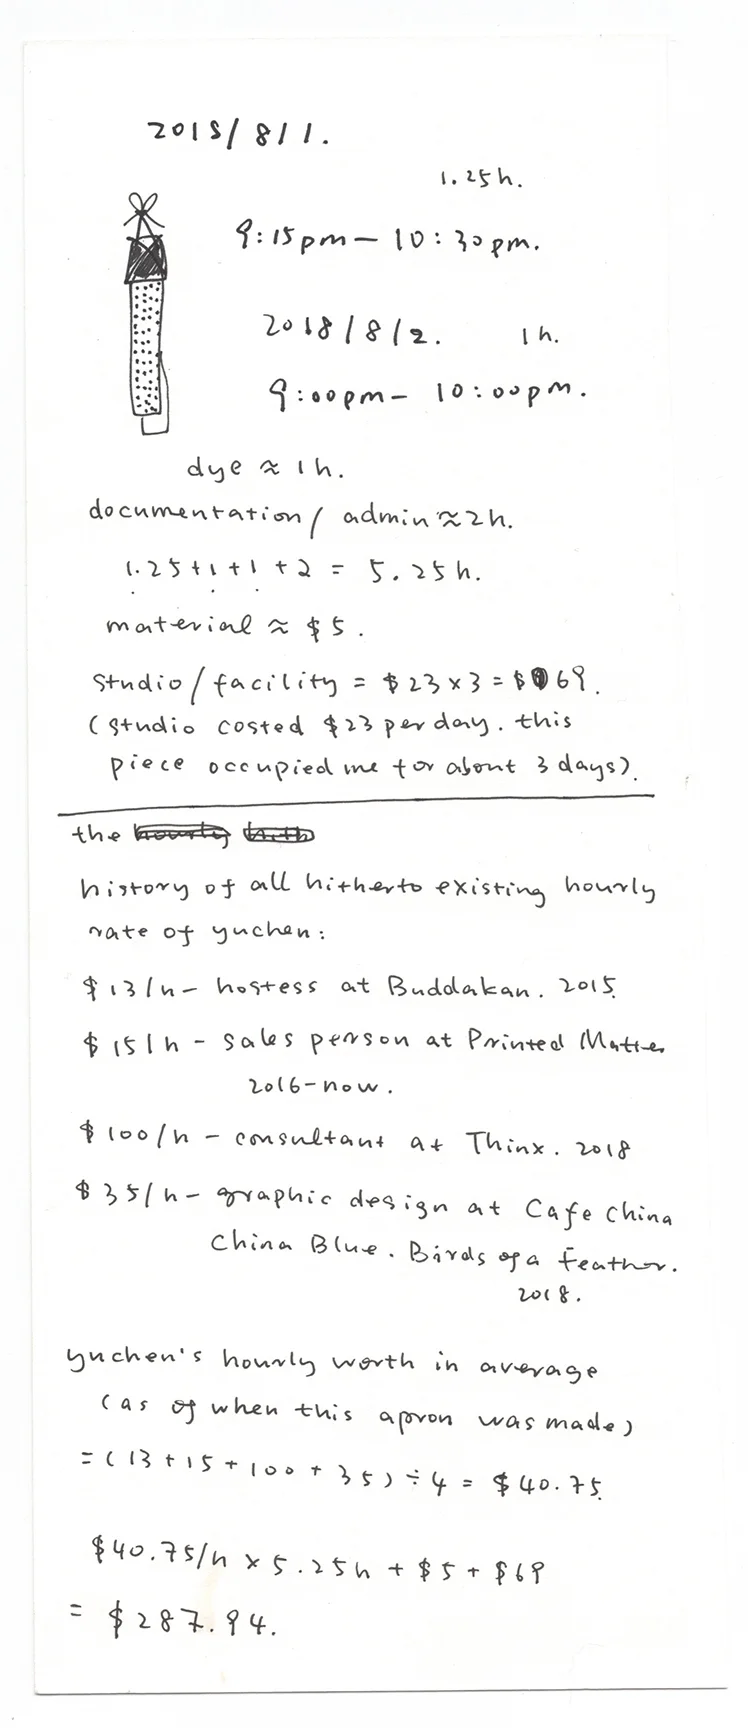 2018/8/1.
1.25h.
9:15pm— 10:30pm.
2018/8/2. 1h.
9:00pm— 10:00pm.
dye ≈ 1h.
documentation/ admin ≈ 2h.
1.25+1+1+2 = 5.25h.
material ≈ $5.
studio/facility = $23×3 = $69.
(studio costed $23 per day. this
piece occupied me for about 3 days).
the
history of all hitherto existing hourly
rate of yuchen:
$13/h— hostess at Buddakan. 2015
$15/h - sales person at Printed Matter
2016-now.
$100/h — consultant at Thinx. 2018
$35/h— graphic design at Cafe China
China Blue. Birds of a Feather.
2018.
yuchen's hourly worth in average
(as of when this apron was made)
= (13+15+100+35) ÷ 4 = $40.75.
$40.75/h × 5.25h + $5 + $69
= $287.94.